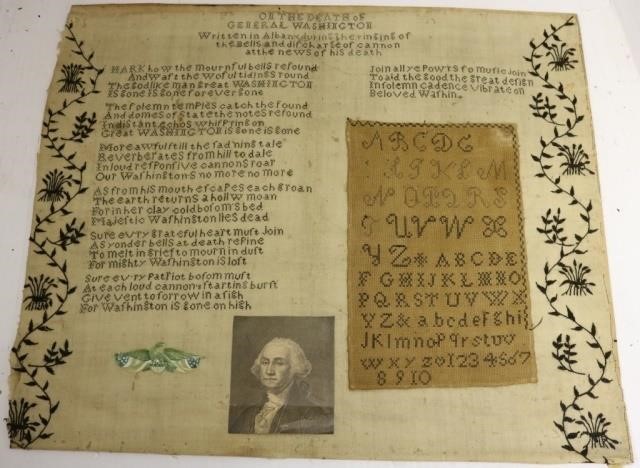 ON THE DEATH OF
GENERAL WASHINGTON
Written in Albany during the ringing of
the bells and discharge of cannon
at the news of his death
HARK how the mournful bells resound
And waft the woful tidings round
The godlike man great WASHINGTON
Is gone is gone forever gone
The solemn temples catch the sound
And domes of state the notes resound
In distant echos whispring on
Great WASHINGTON is gone is gone
More awful still the sad'ning tale
Reverberates from hill to dale
In loud responsive cannons roar
Our Washingtons no more no more
As from his mouth escapes each groan
The earth returns a hollw moan
For in her clay cold bosom's bed
Majestic Washington lies dead
Sure evry grateful heart must Join
As yonder bells at death refine
To melt in grief to mourn in dust
For mighty Washington is lost
Sure evry Patriot bosom must
At each loud cannons starting burst
Give vent to sorrow in a sigh
For Washington is gone on high
Join all ye Powrs of music Join
To aid the good the great design
In solemn cadence vibrate on
Beloved Washin
A B C D G
I J K L M
N O P Q R S
T U V W X
Y Z & A B C D E F
F G H I J K L M N O
P Q R S T U V W X
Y Z & a b c d e f g h i
J K l m n o p q r s t u v
w x y z 0 1 2 3 4 5 6 7
8 9 10